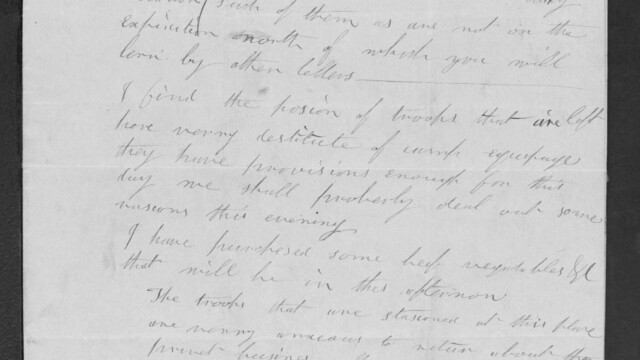 such of them as are not in the
expicition north of which you will
lern by other letters
I find the posion of troops that are left
here verry destitute of camp equipage
they have provisions enough for this
day we shall proberly deal out some
rasions this evening
I have purchased some beef vegetables &c
that will be in this afternoon
The troops that are stasoned at this place
are verry anxious to return about their
privet